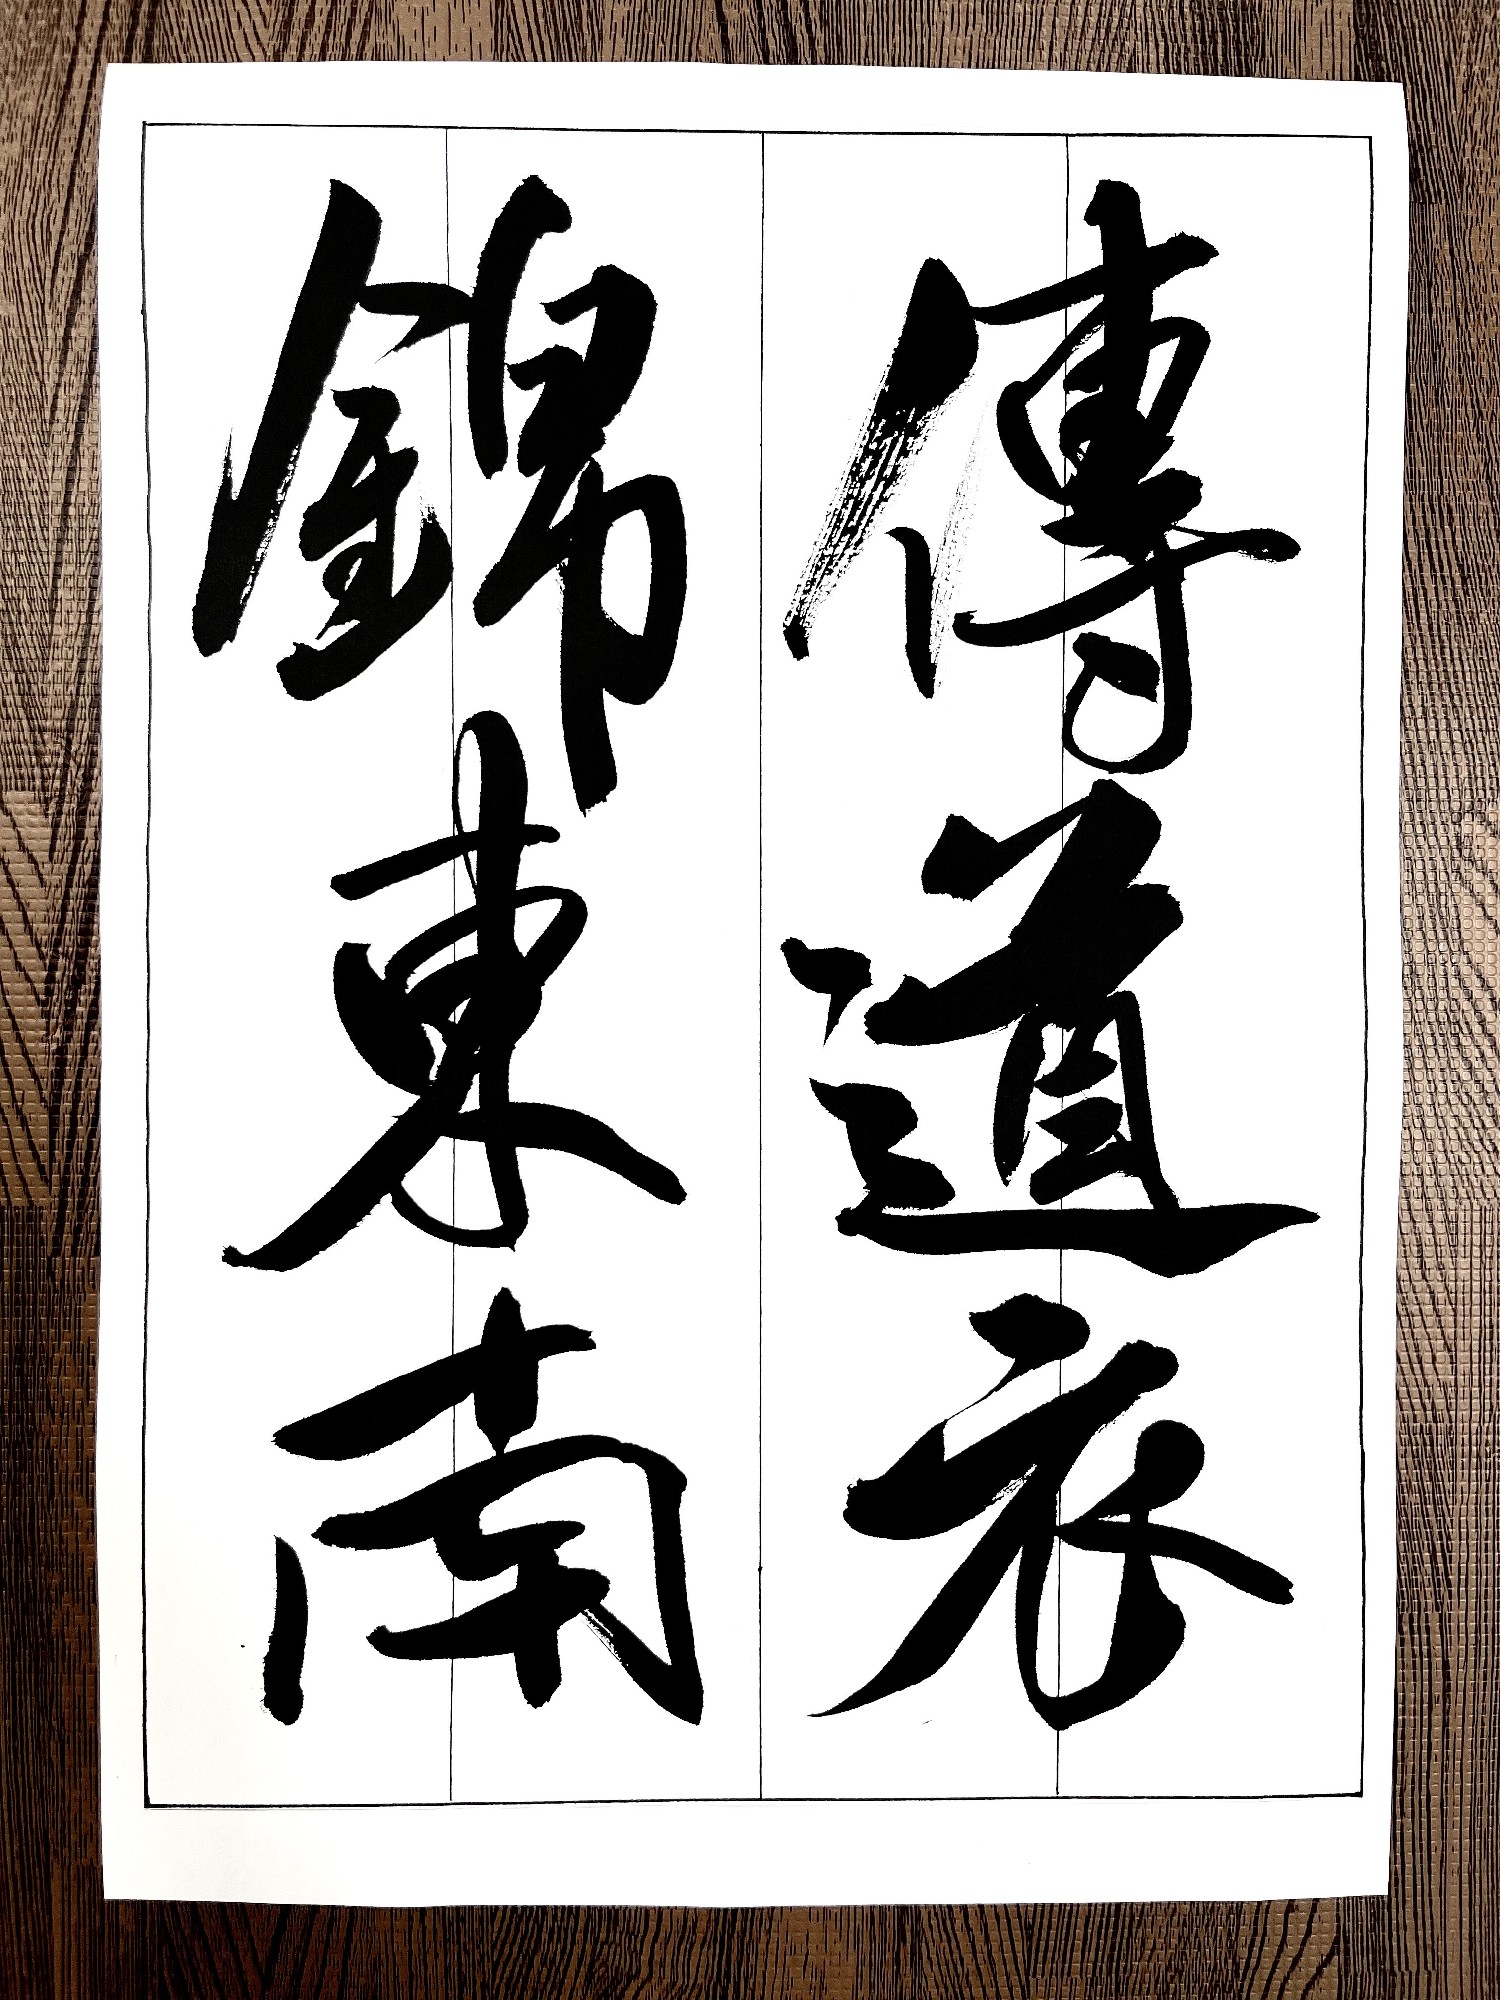 傳道衣
錦東南